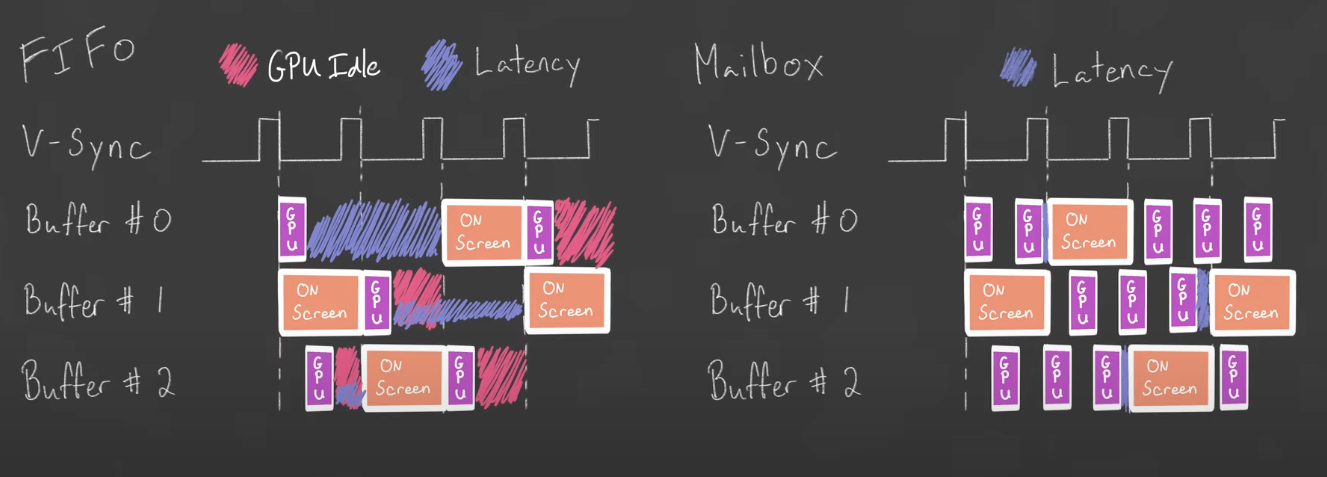 FIFO
GPU Idle
Latency
V-Sync
Buffer #0
GPU
ON Screen
GPU
Buffer #1
ON Screen
GPU
ON Screen
Buffer #2
GPU
ON Screen
GPU
Mailbox
Latency
V-Sync
Buffer #0
GPU
GPU
ON Screen
GPU
GPU
GPU
Buffer #1
ON Screen
GPU
GPU
GPU
ON Screen
Buffer #2
GPU
GPU
GPU
ON Screen
GPU